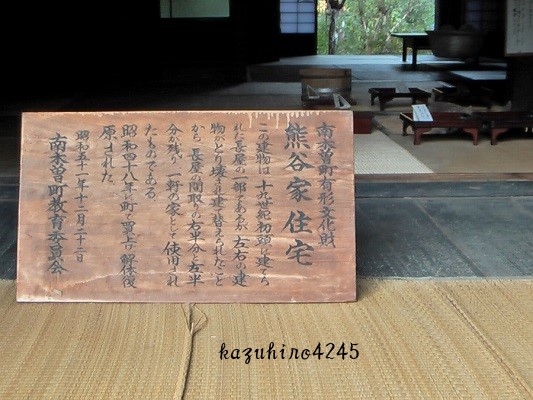 南木曽町有形文化財
熊谷家住宅
この建物は、十九世紀初頭に建てら
れた長屋の一部であるが、左右の建
物がとり壊され建て替えられたこと
から、長屋の間取りの右半分と左半
分が残り、一軒の家として使用され
たものである。
昭和四十八年に町で買上げ、解体復
原された。
昭和五十一年十二月二十二日
南木曽町教育委員会
kazuhiro4245